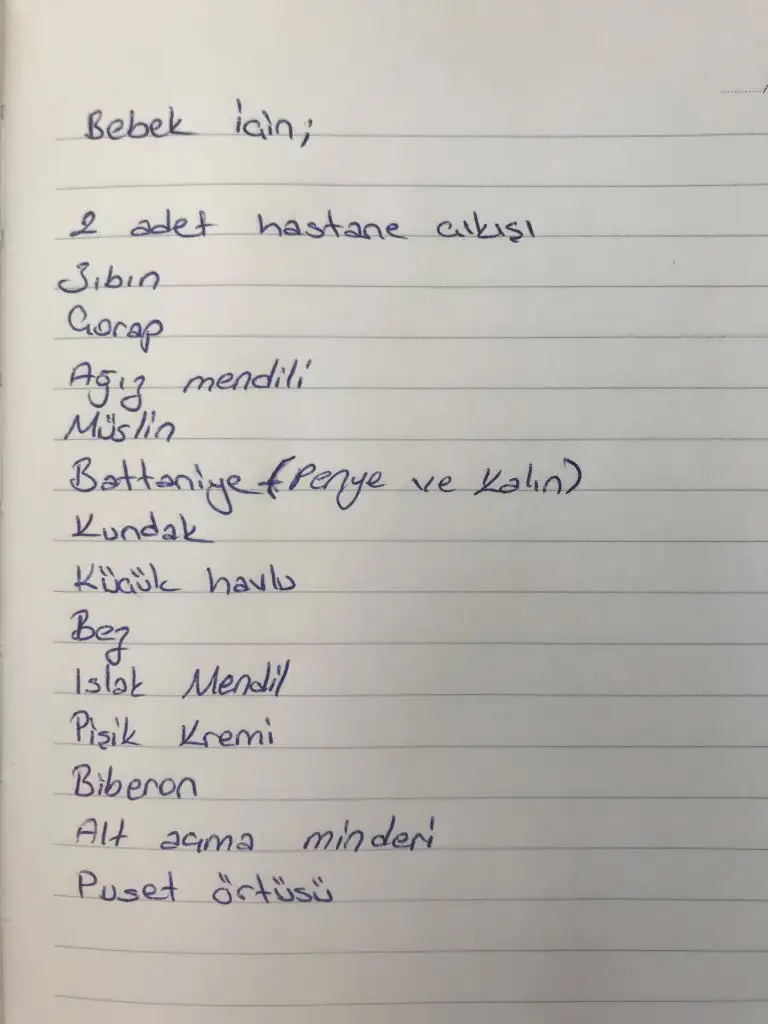 Bebek İçin;
2 adet hastane çıkışı
Zıbın
Çorap
Ağız mendili
Müslin
Battaniye (Penye ve Kalın)
Kundak
Küçük havlu
Bez
Islak Mendil
Pişik Kremi
Biberon
Alt açma minderi
Puset örtüsü